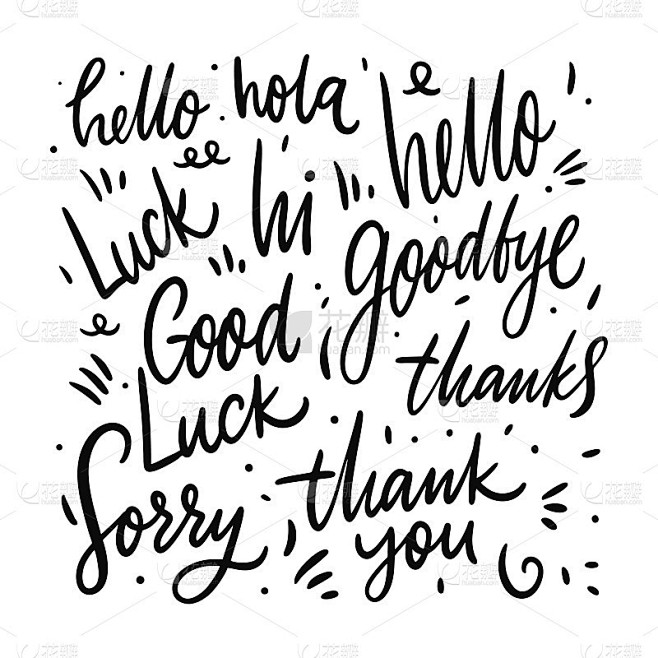 hello hola hello
Luck hi goodbye
Good Luck
thanks
Sorry
thank you
花瓣
huaban.com